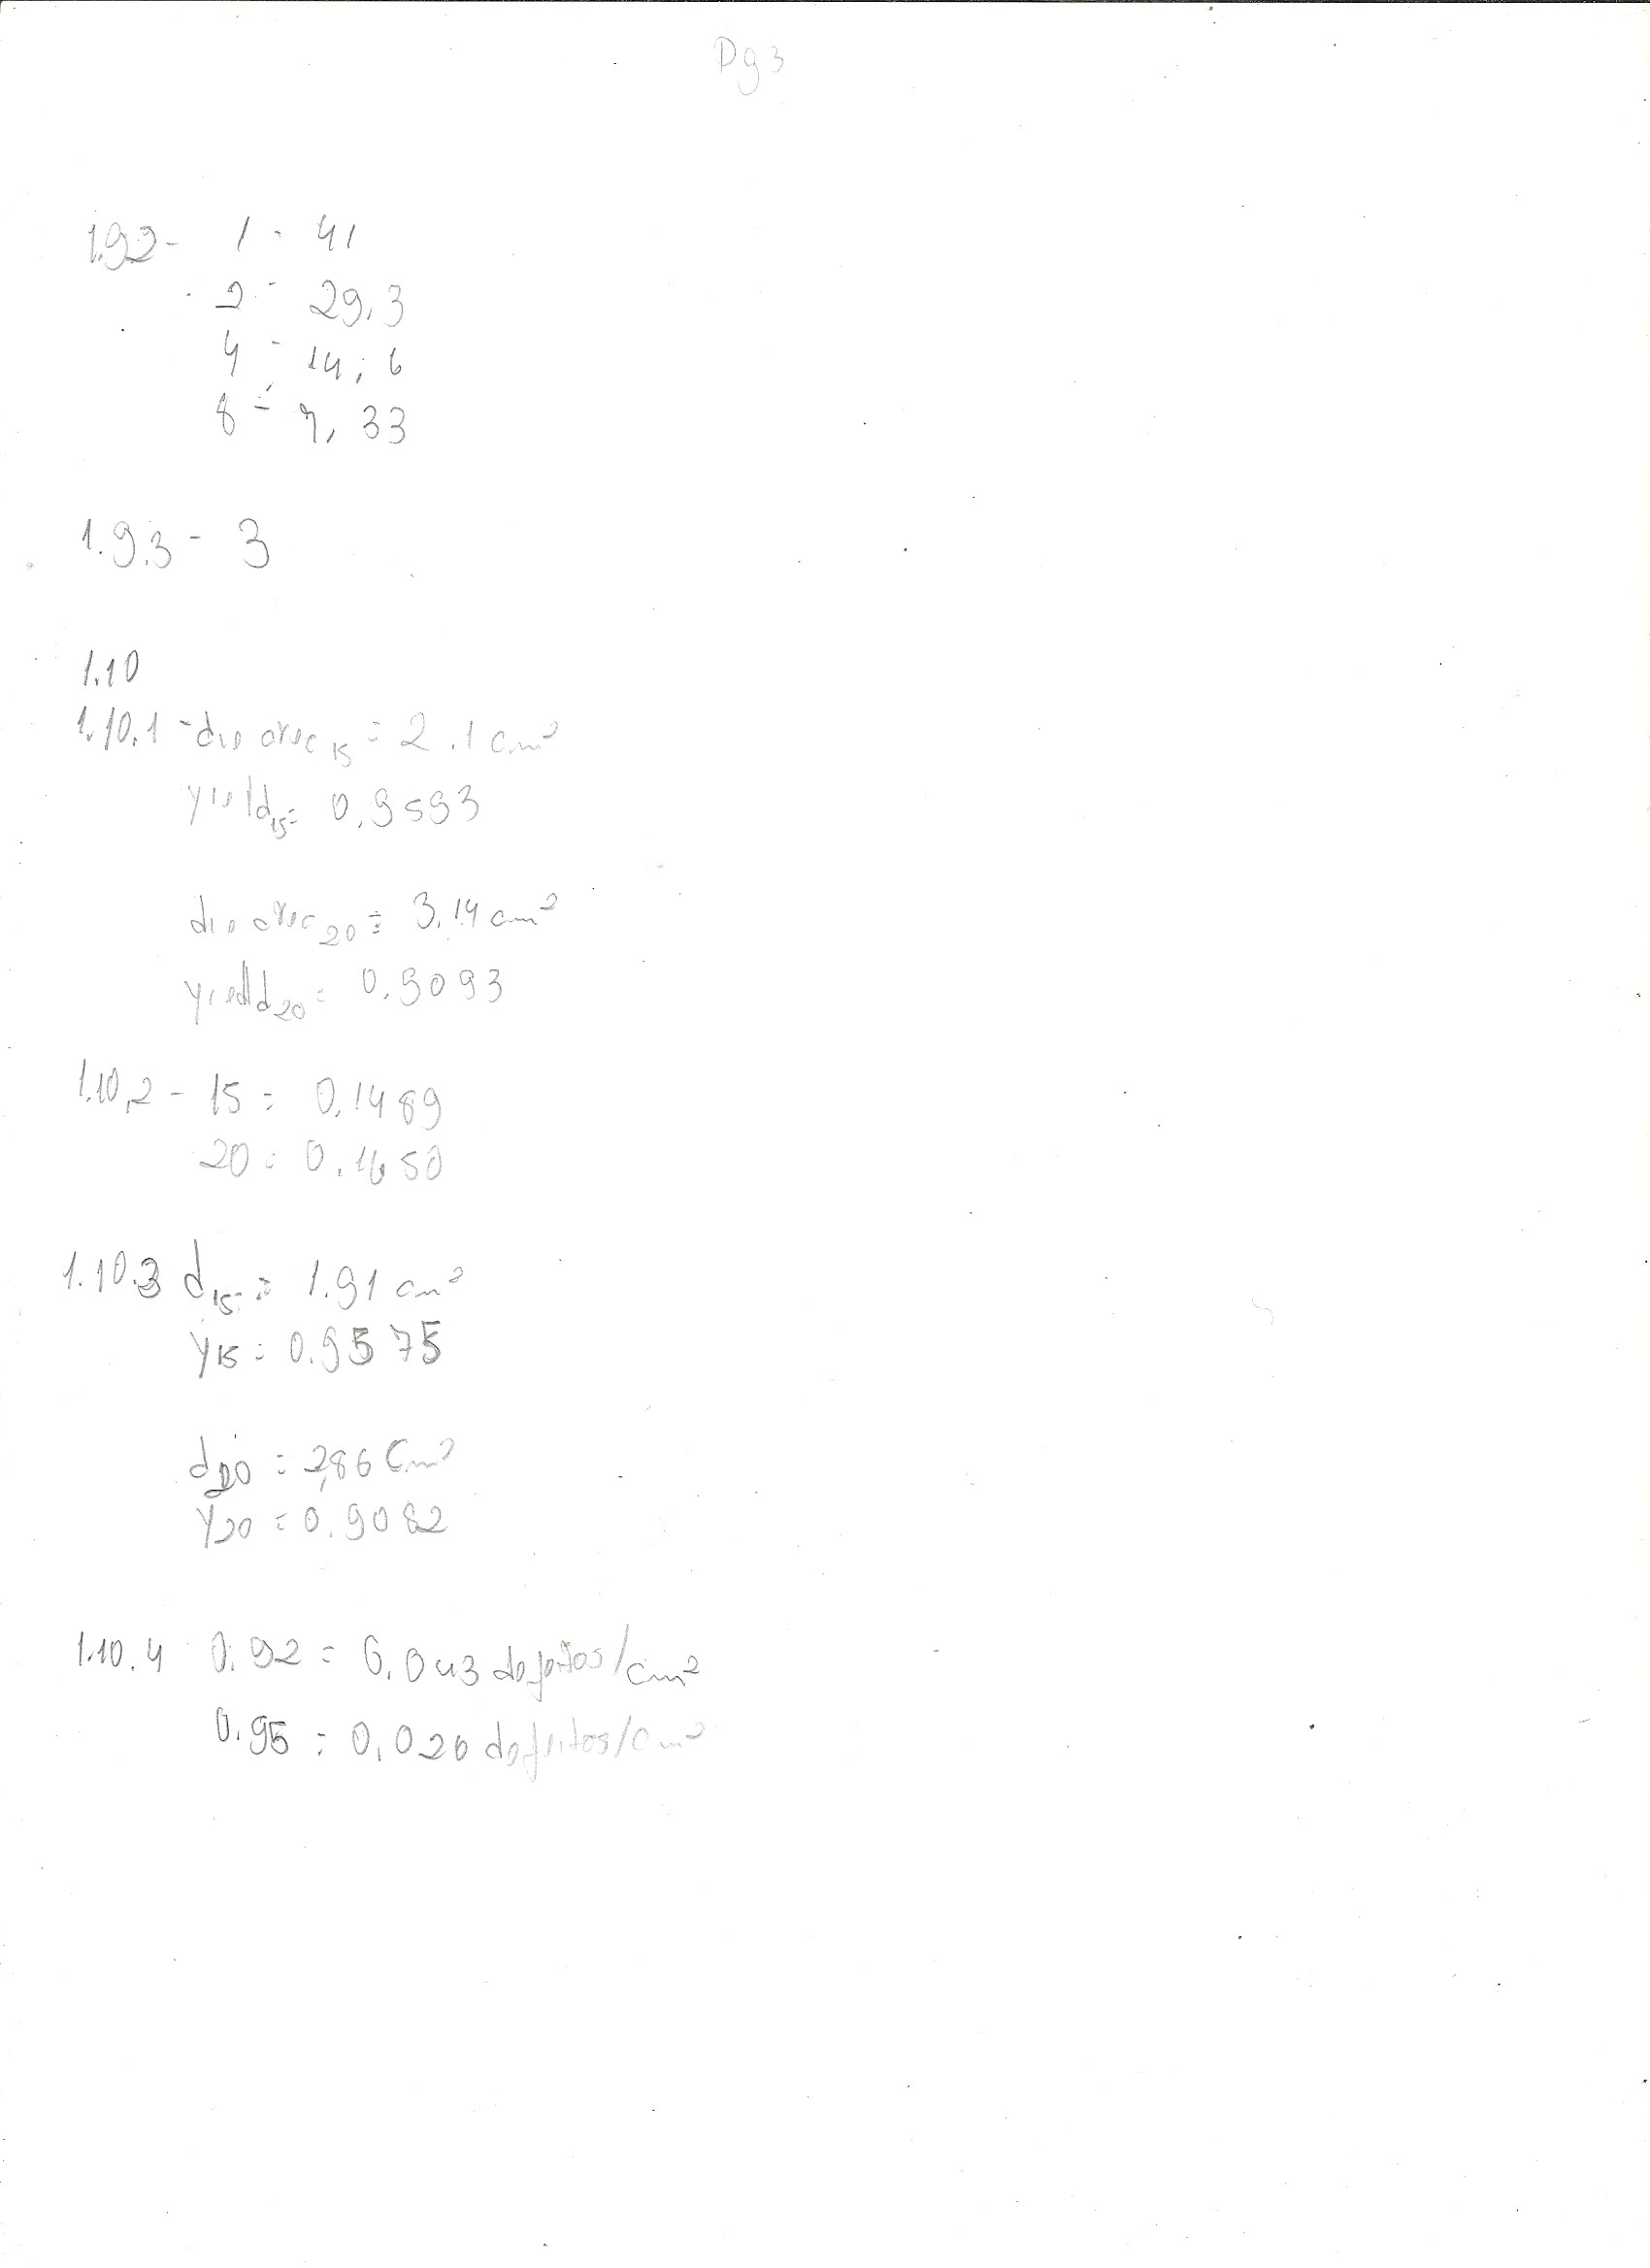 Pg 3
1.9.2 - 1 - 41
2 - 29,3
4 - 14,6
8 - 7,33
1.9.3 - 3
1.10
1.10.1 - die area 15 = 2.1 cm²
yield 15 = 0.9593
die area 20 = 3.14 cm²
yield 20 = 0.9093
1.10.2 - 15 = 0.1489
20 = 0.1650
1.10.3 d15 = 1.91 cm²
y15 = 0.9575
d20 = 2,86 Cm²
y20 = 0.9082
1.10.4 0.92 = 0.043 defeitos/cm²
0.95 = 0,026 defeitos/cm²